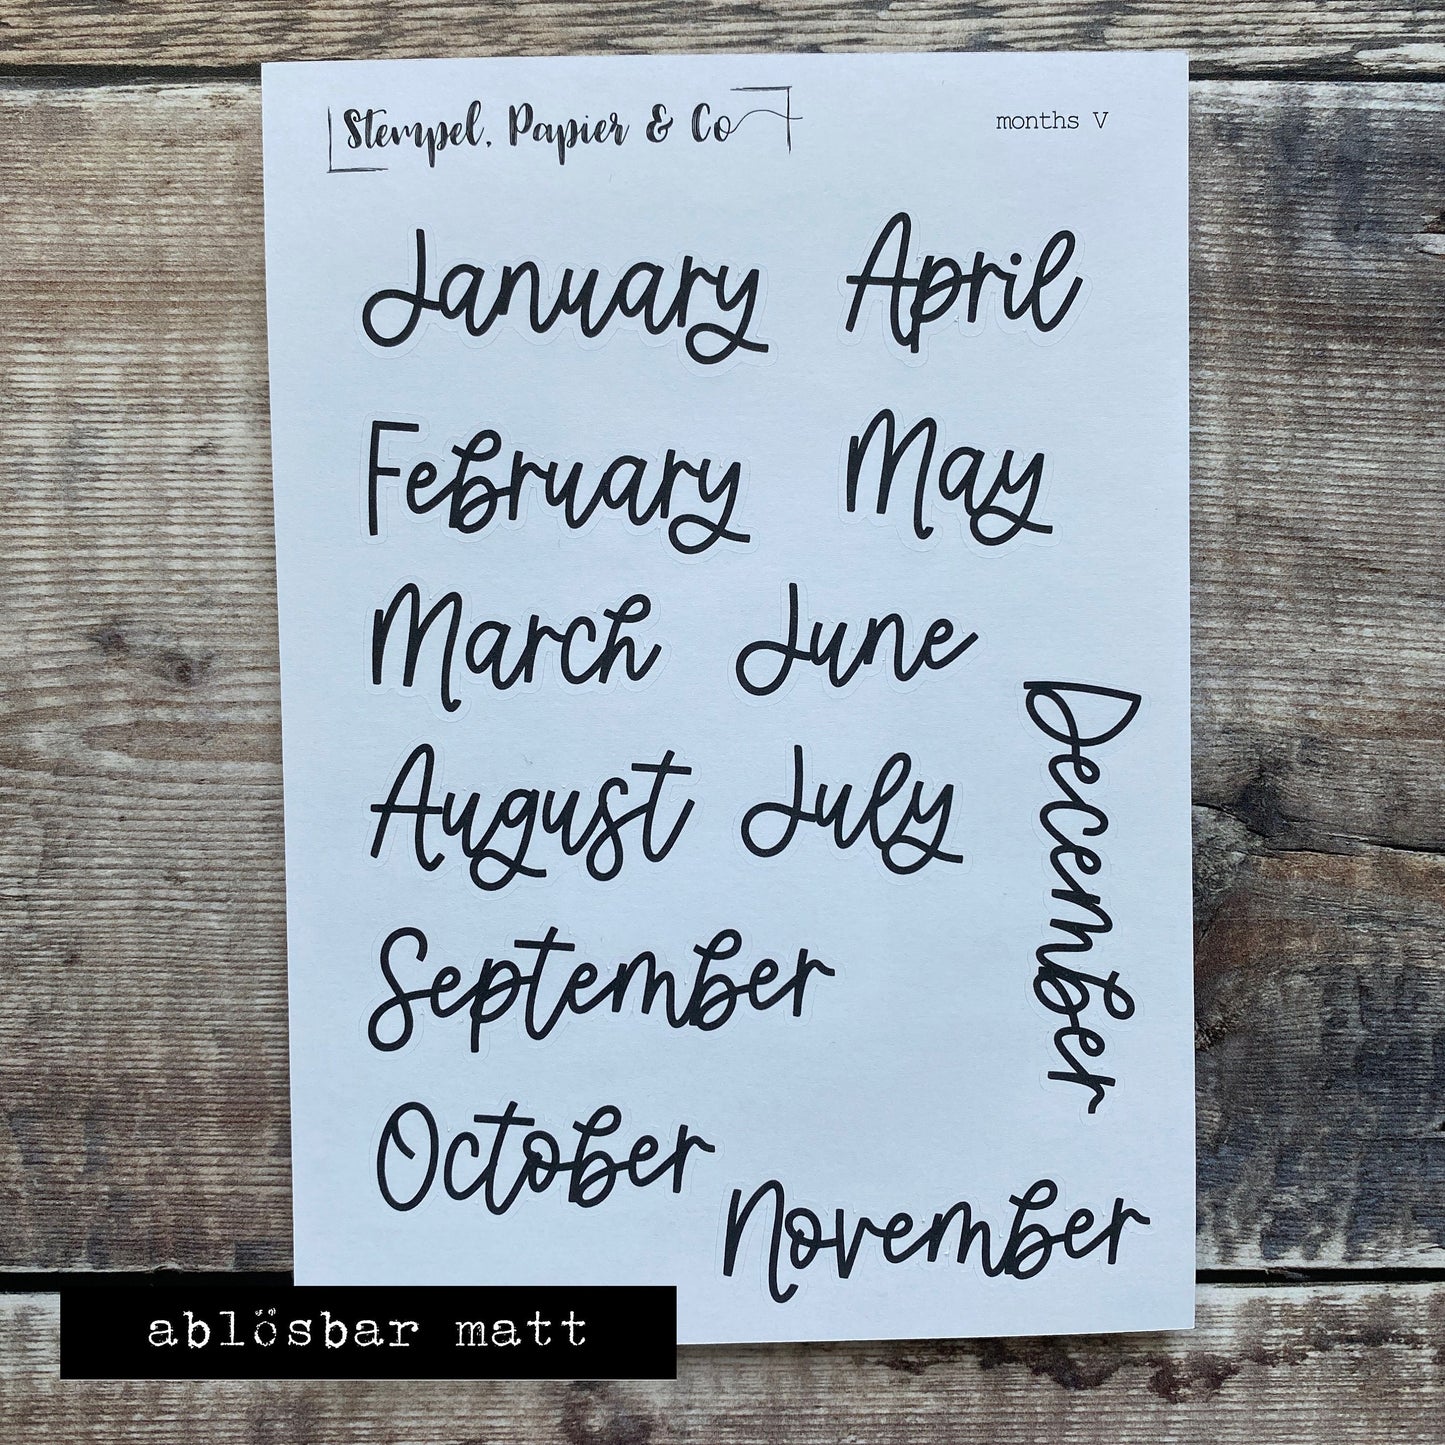 Stempel, Papier & Co
months V
January
April
February
May
March
June
December
August
July
September
October
November
ablösbar matt